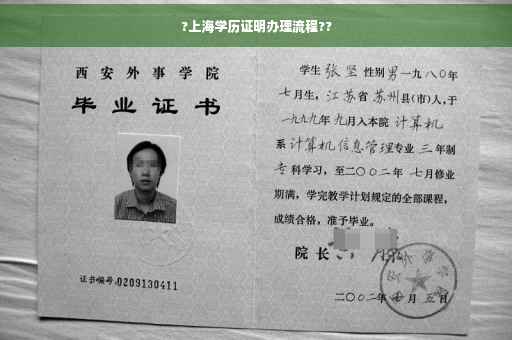 ?上海学历证明办理流程??
西安外事学院
毕业证书
证书编号:0209130411
学生 张坚 性别 男 一九八0年
七月生，江苏省 苏州县(市)人，于
一九九九年 九月入本院 计算机
系 计算机信息管理专业 三 年制
专 科学习，至二〇〇二年 七月修业
期满，学完教学计划规定的全部课程，
成绩合格，准予毕业。
院长
二〇〇二年 月 五日